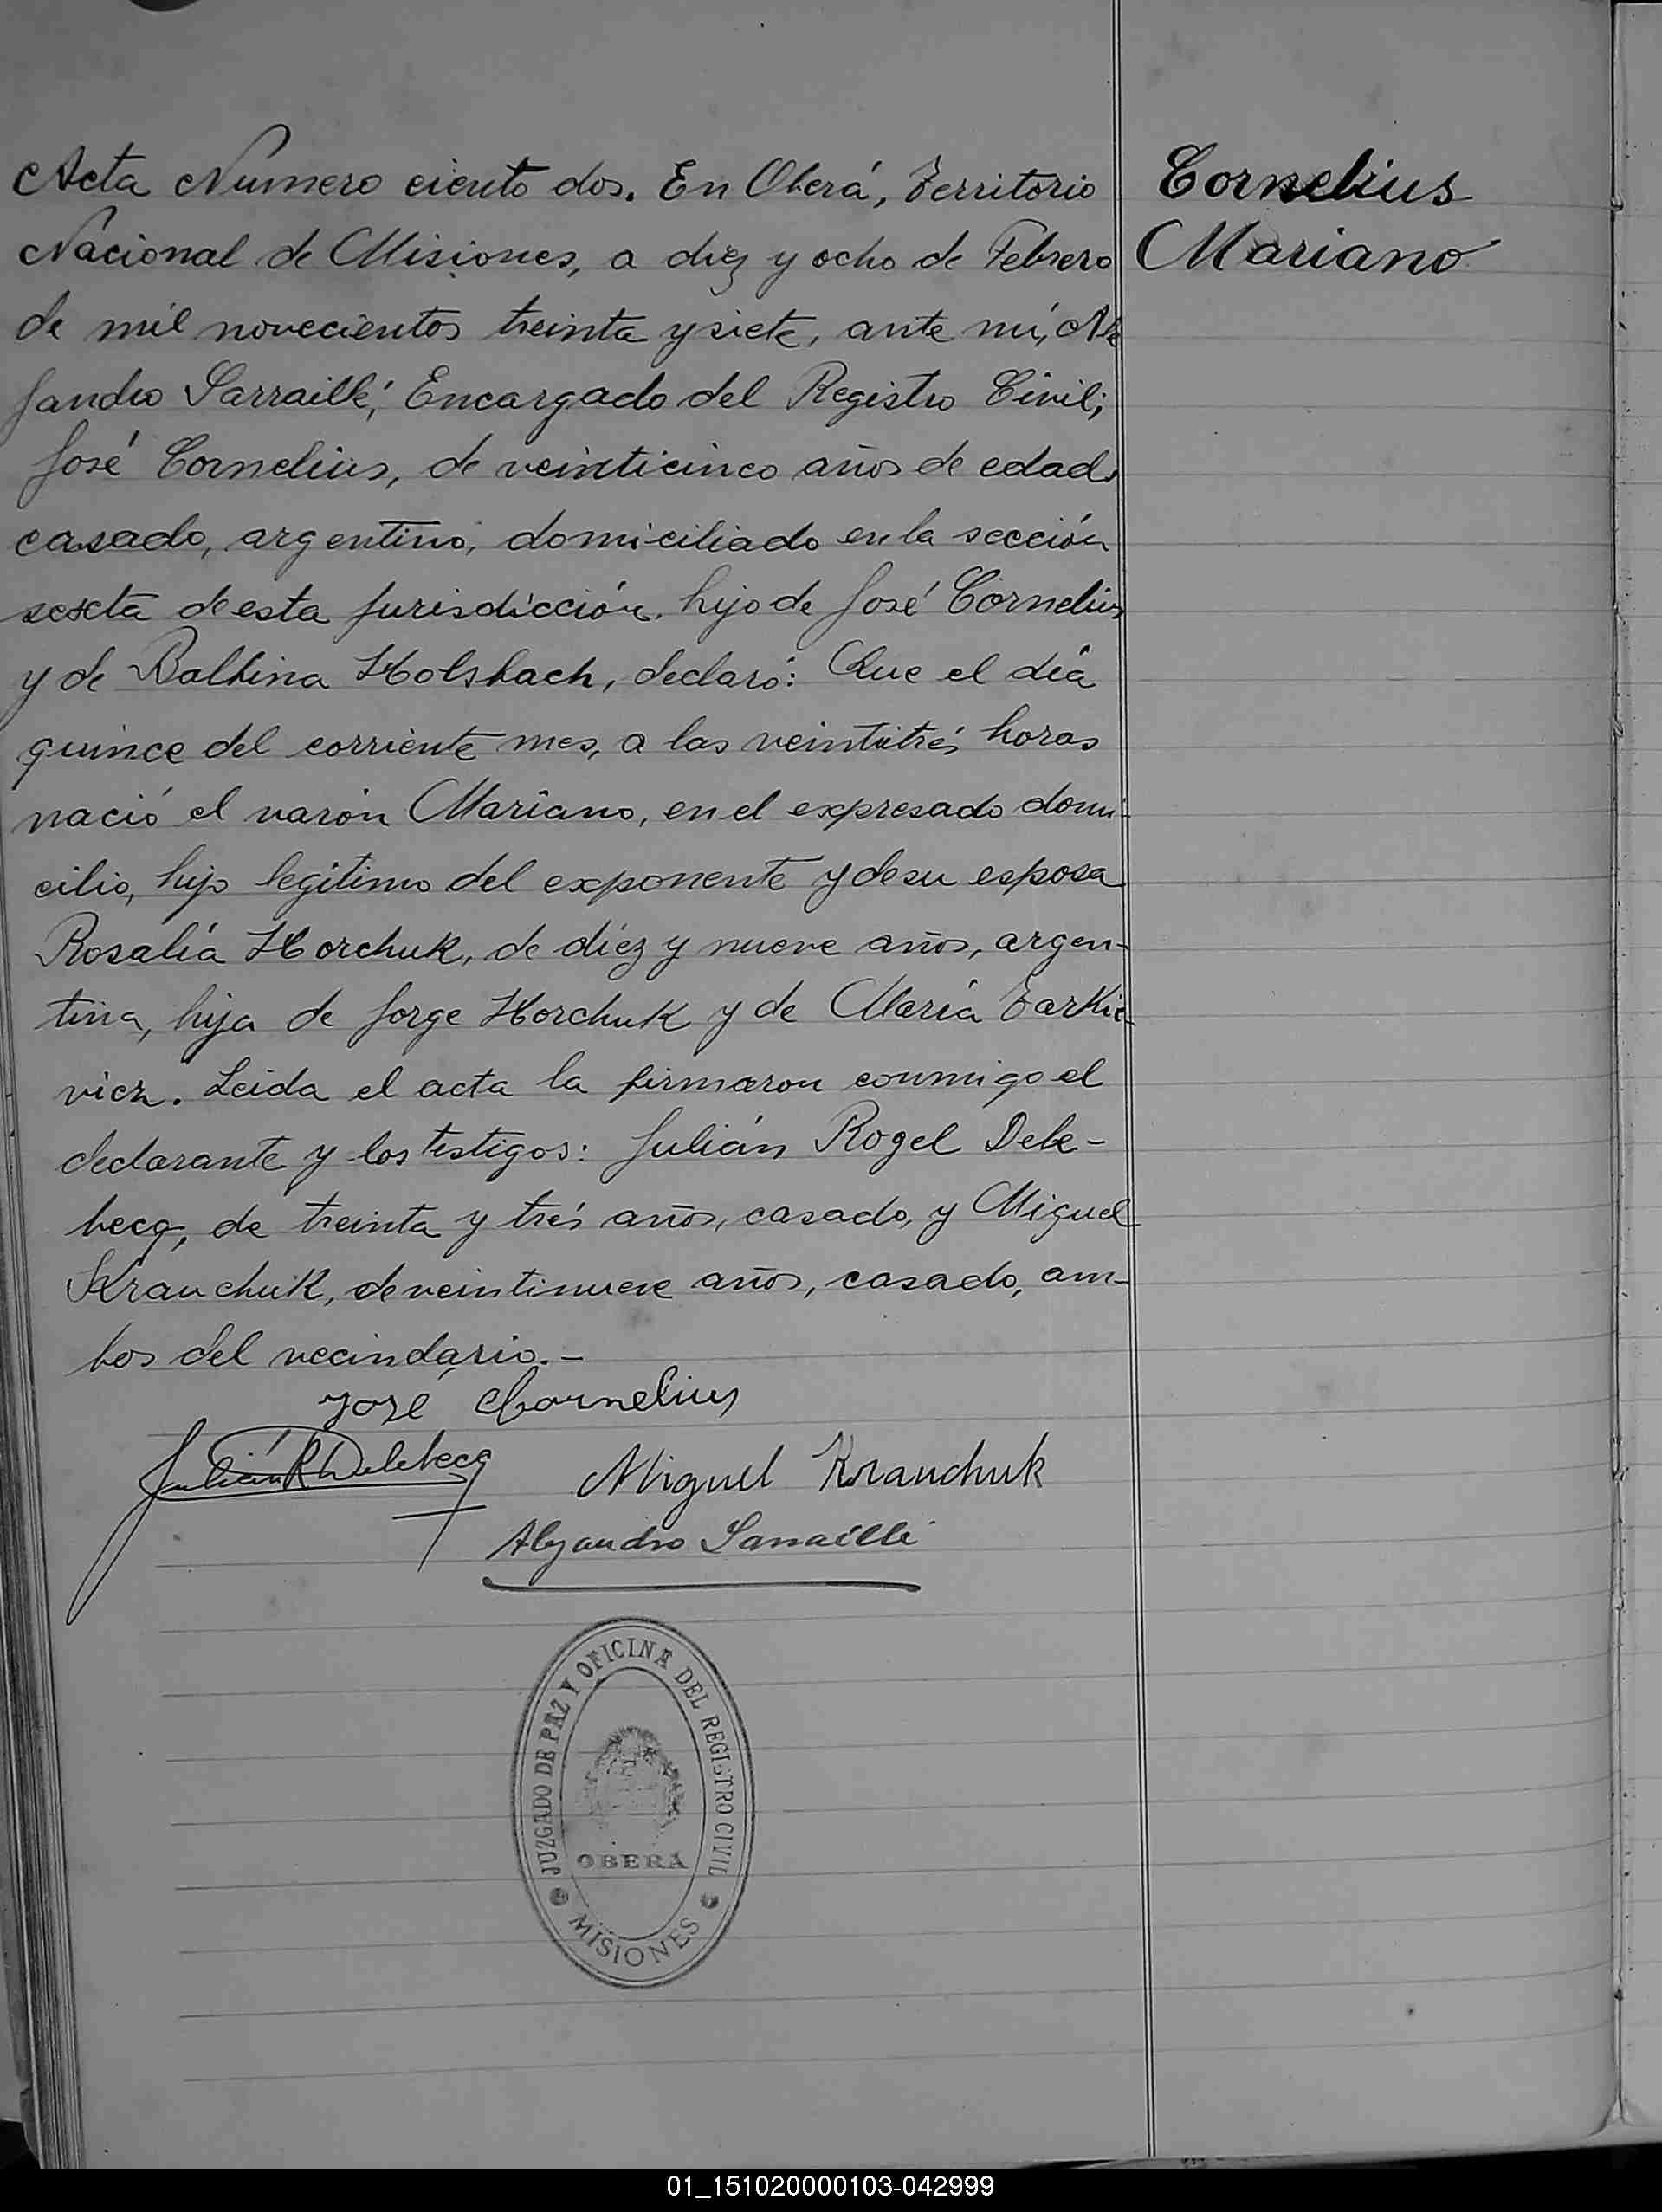 Acta Número ciento dos. En Oberá, Territorio
Nacional de Misiones, a diez y ocho de Febrero
de mil novecientos treinta y siete, ante mí, Ale
jandro Sarraillé, Encargado del Registro Civil;
José Cornelius, de veinticinco años de edad,
casado, argentino, domiciliado en la sección
sexta de esta jurisdicción, hijo de José Cornelius
y de Balbina Holsbach, declaró: Que el día
quince del corriente mes, a las veintitrés horas
nació el varón Mariano, en el expresado domi-
cilio, hijo legítimo del exponente y de su esposa
Rosalía Horchuk, de diez y nueve años, argen-
tina, hija de Jorge Horchuk y de María Tarkie-
vicz. Leida el acta la firmaron conmigo el
declarante y los testigos: Julián Rogel Dele-
becq, de treinta y trés años, casado, y Miguel
Krauchuk, de veintinueve años, casado, am-
bos del vecindario.-
José Cornelius
Julián R Delebecq
Miguel Krauchuk
Alejandro Sarraillé
Cornelius
Mariano
JUZGADO DE PAZ Y OFICINA DEL REGISTRO CIVIL
OBERÁ
MISIONES
01_151020000103-042999